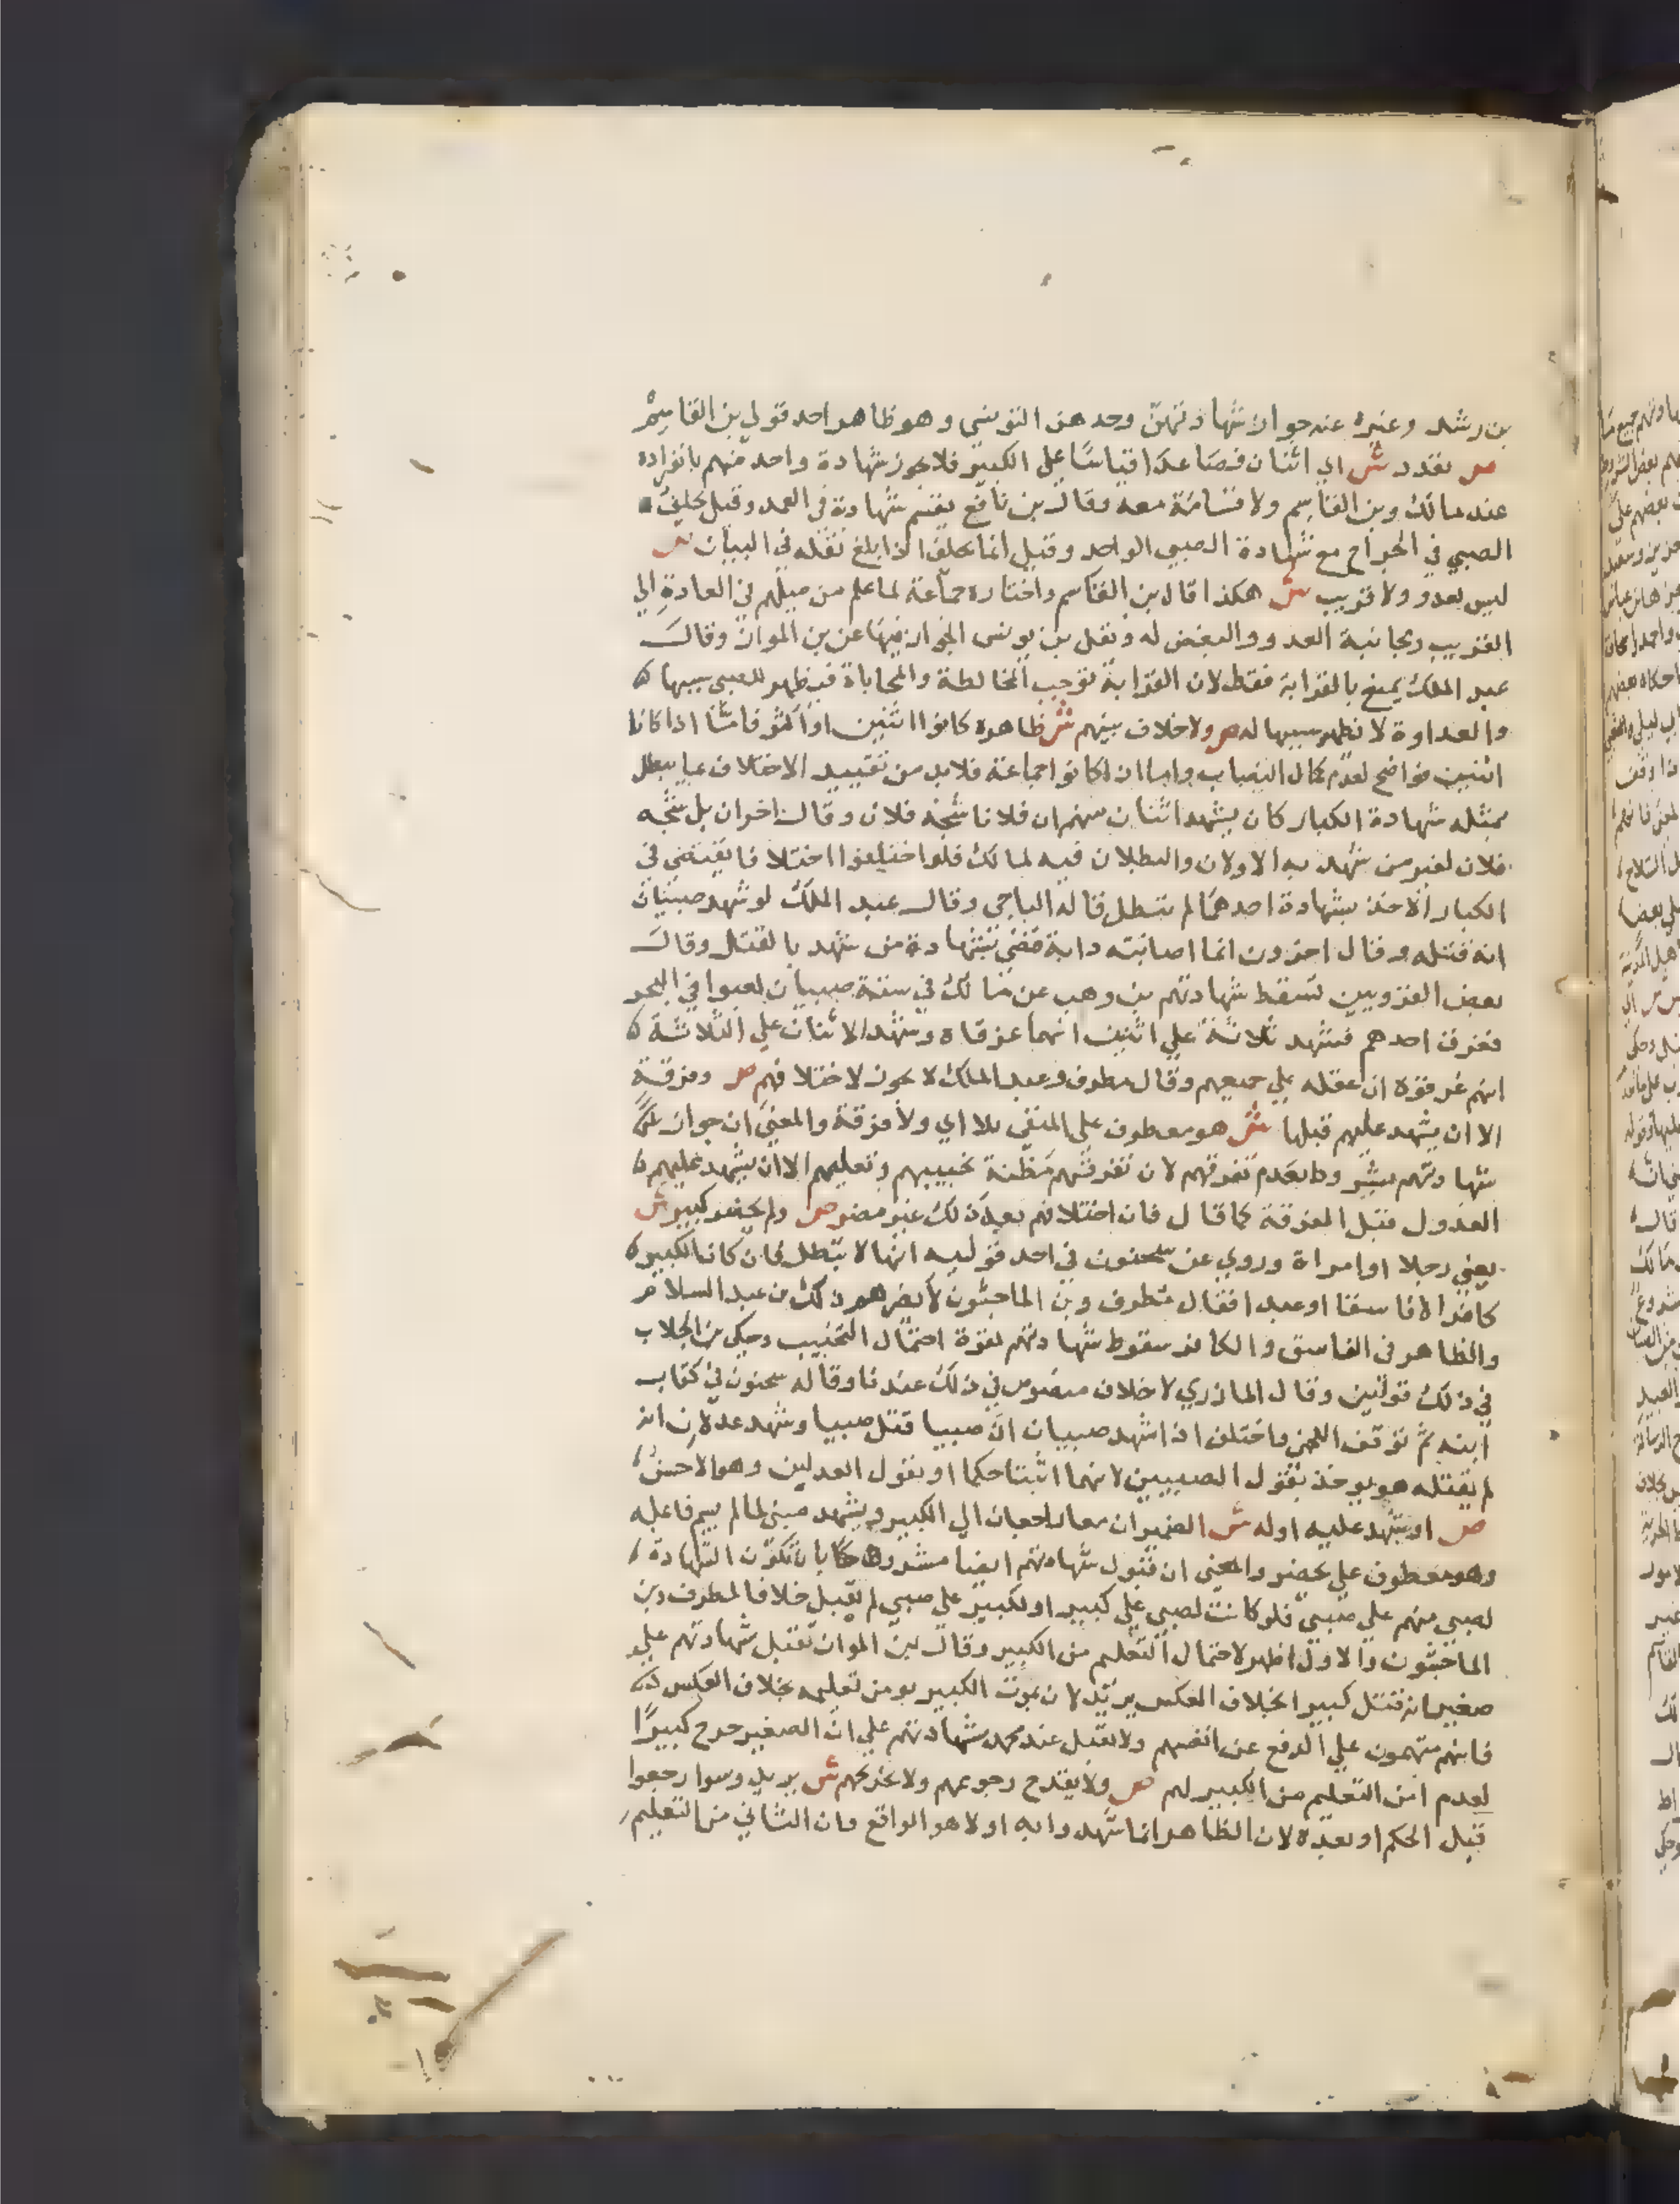 بن رشد وغيره عنه جواز شهادتهن وحدهن التونسي وهو ظاهر احد قولي بن القاسم
ص تعدد ش اي اثنان فصاعدا قياسا علي الكبير فلا يجوز شهادة واحد منهم بانفراده
عند مالك وبن القاسم ولا قسامة معه وقال بن نافع يقسم بشهادته في العمد وقيل يحلف
الصبي في الجراح مع شهادة الصبي الواحد وقيل انما يحلف اذا بلغ نقله في البيان ص
ليس بعدو ولا قريب ش هكذا قال بن القاسم واختاره جماعة لما علم من ميلهم في العادة الي
القريب ومجانبة العدو والبغض له ونقل بن يونس الجواز فيها عن بن المواز وقال
عبد الملك يمنع بالقرابة فقط لان القرابة توجب المخالطة والمحاباة فيظهر للصبي سببها
والعداوة لا يظهر سببها له ص ولا خلاف بينهم ش ظاهره كانوا اثنين او اكثر فاما اذا كانا
اثنين فواضح لعدم كمال النصاب واما ان كانوا جماعة فلا بد من تقييد الاختلاف بما يبطل
بمثله شهادة الكبار كان يشهد اثنان منهم ان فلانا شجه فلان وقال اخران بل شجه
فلان لغير من شهد به الاولان والبطلان فيه لمالك فلو اختلفوا اختلافا يقتضي في
الكبار الاخذ بشهادة احدهما لم تبطل قاله الباجي وقال عبد الملك لو شهد صبيان
انه قتله وقال اخرون انما اصابته دابة قضي بشهادة من شهد بالقتل وقال
بعض القرويين تسقط شهادتهم بن وهب عن مالك في ستة صبيان لعبوا في البحر
فغرق احدهم فشهد ثلاثة علي اثنين انهما غرقاه وشهد الاثنان علي الثلاثة
انهم غرقوه ان عقله علي جميعهم وقال مطرف وعبد الملك لا يجوز لاختلافهم ص وفرقة
الا ان يشهد عليهم قبلها ش هو معطوف علي المنفي بلا اي ولا فرقة والمعني ان جواز
شهادتهم مشروط بعدم تفرقهم لان تفرقهم مظنة تخبيبهم وتعليمهم الا ان يشهد عليهم
العدول قبل الفرقة كما قال فان اختلافهم بعد ذلك غير مضر ص ولم يحضر كبير ش
يعني رجلا او امراة وروي عن سحنون في احد قوليه انها لا تبطل فان كان الكبير
كافرا او فاسقا او عبدا فقال مطرف وبن الماجشون لا يضرهم ذلك بن عبد السلام
والظاهر في الفاسق والكافر سقوط شهادتهم لقوة احتمال التخبيب وحكي بن الجلاب
في ذلك قولين وقال المازري لا خلاف منصوص في ذلك عندنا وقاله سحنون في كتاب
ابنه ثم توقف اللخمي واختلف اذا شهد صبيان ان صبيا قتل صبيا وشهد عدلان انه
لم يقتله هو يوخذ بقول الصبيين لانهما اثبتا حكما او بقول العدلين وهو الاحسن
ص او يشهد عليه او له ش الضميران معا راجعان الي الكبير ويشهد مبني لما لم يسم فاعله
وهو معطوف علي يحضر والمعني ان قبول شهادتهم ايضا مشروط بان تكون الشهادة
لصبي منهم علي صبي فلو كانت لصبي علي كبير او لكبير علي صبي لم يقبل خلافا لمطرف وبن
الماجشون والاول اظهر لاحتمال التعليم من الكبير وقال بن المواز تقبل شهادتهم علي
صغير انه قتل كبيرا بخلاف العكس يريد لان بموت الكبير يومن تعليمه بخلاف العكس
فانهم متهمون علي الدفع عن انفسهم ولا تقبل عند محمد شهادتهم علي ان الصغير جرح كبيرا
لعدم امن التعليم من الكبير لهم ص ولا يقدح رجوعهم ولا تجريحهم ش يريد وسوا رجعوا
قبل الحكم او بعده لان الظاهر انما شهدوا به اولا هو الواقع وان الثاني من التعليم